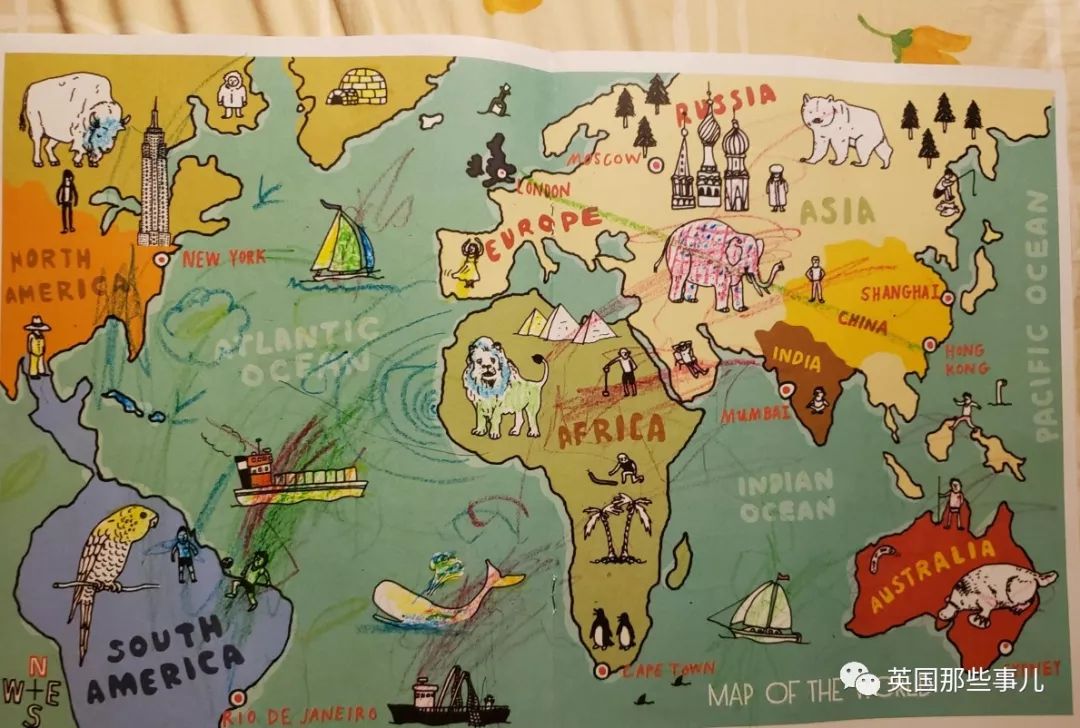 RUSSIA
MOSCOW
LONDON
EUROPE
ASIA
NORTH
AMERICA
NEW YORK
ATLANTIC
OCEAN
SHANGHAI
CHINA
PACIFIC OCEAN
INDIA
HONG
KONG
MUMBAI
AFRICA
INDIAN
OCEAN
AUSTRALIA
SOUTH
AMERICA
N
W+E
S
RIO DE JANEIRO
CAPE TOWN
SYDNEY
MAP OF THE WORLD
英国那些事儿